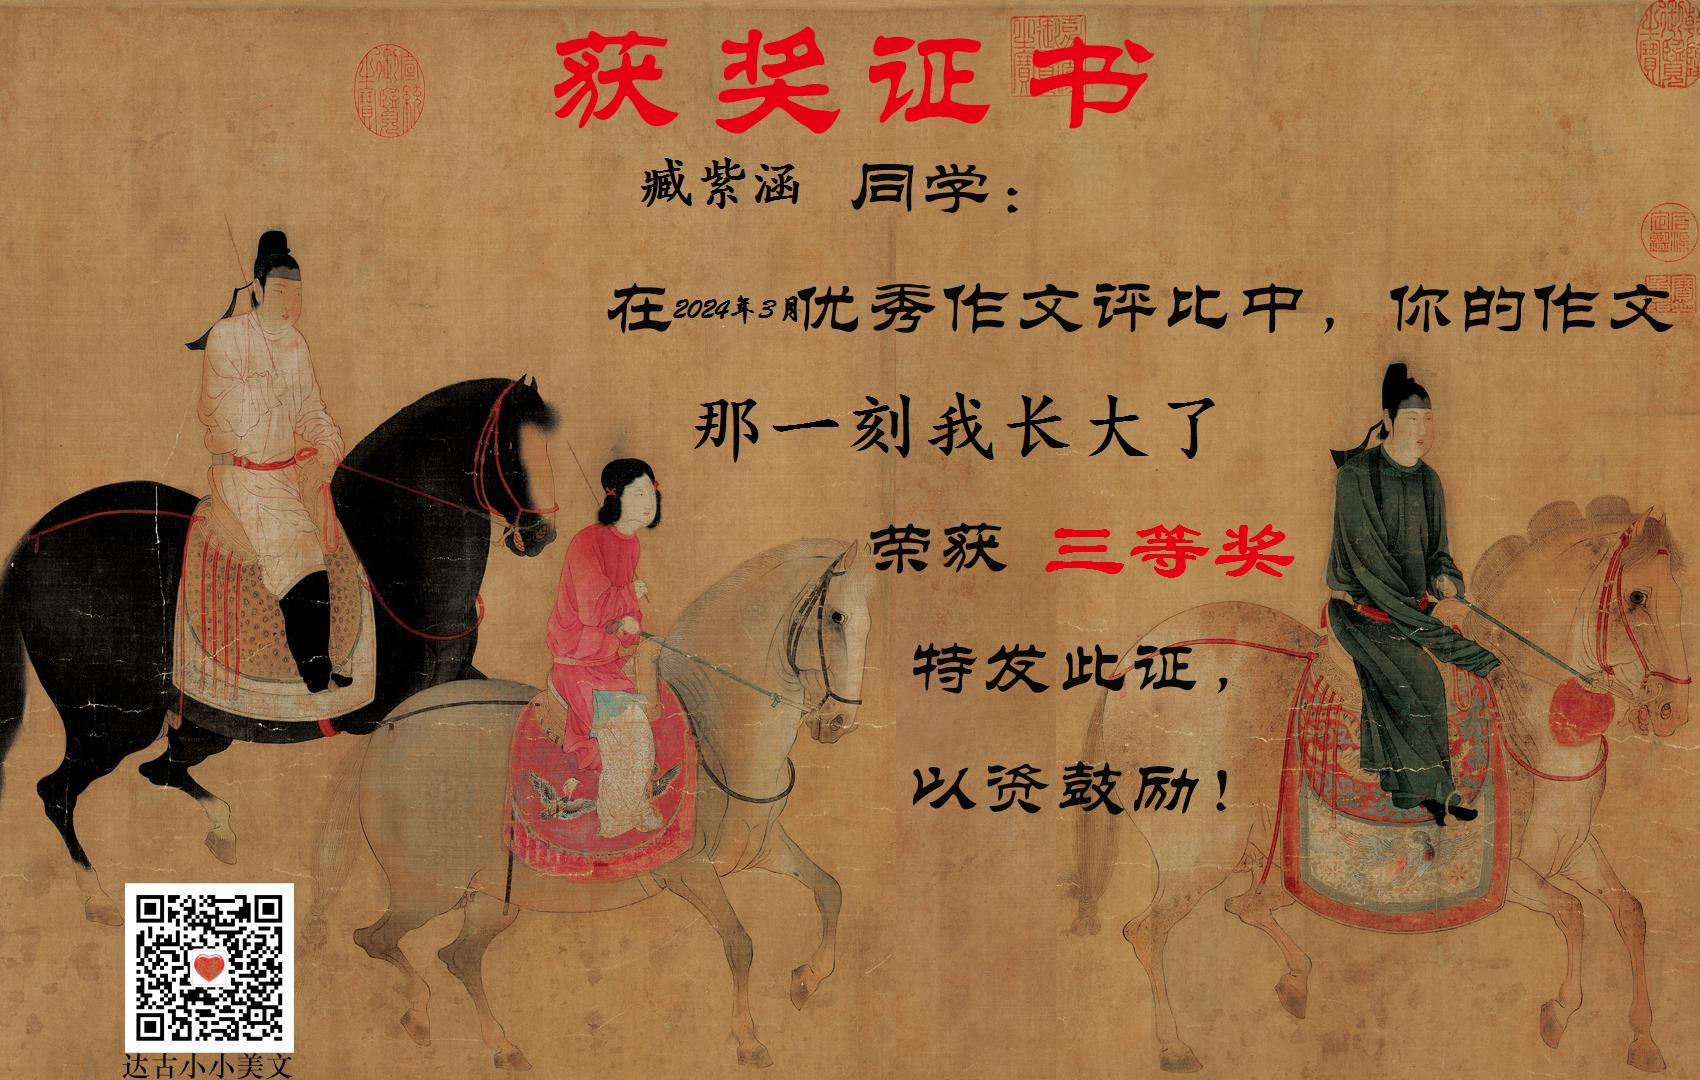 获奖证书
臧紫涵 同学：
在2024年3月优秀作文评比中，你的作文
那一刻我长大了
荣获 三等奖
特发此证，
以资鼓励！
达古小小美文